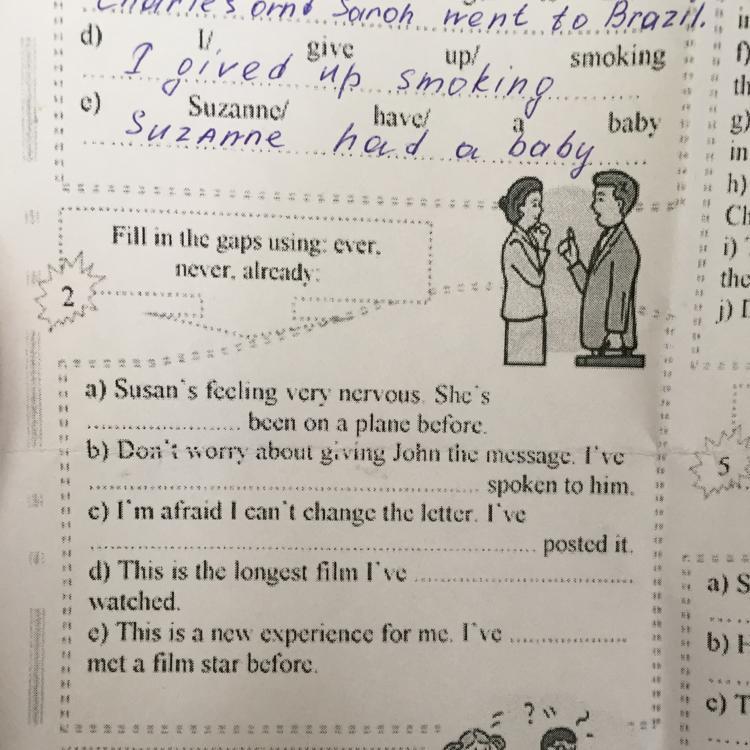 Charles and Sarah went to Brazil.
d) I/ give up/ smoking
I gived up smoking
e) Suzanne/ have/ a baby
Suzanne had a baby
Fill in the gaps using: ever,
never, already:
2
a) Susan's feeling very nervous. She's
...................... been on a plane before.
b) Don't worry about giving John the message. I've
...................... spoken to him.
c) I'm afraid I can't change the letter. I've
...................... posted it.
d) This is the longest film I've ......................
watched.
e) This is a new experience for me. I've ......................
met a film star before.
f)
th
g)
in
h)
Ch
i)
the
j)
5
a) S
b) H
c) T